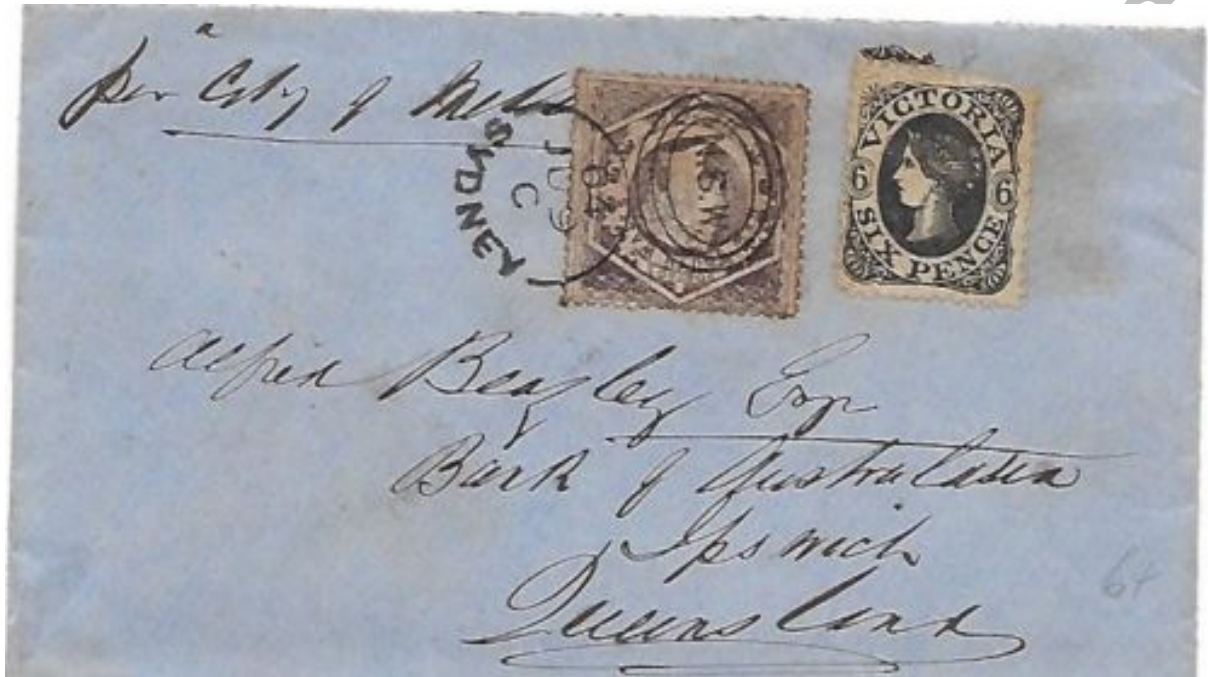 per "City of Melb
SYDNEY
C
JU 9
64
N.S.W
VICTORIA
6 6
SIX PENCE
Alfred Beazley Esqr
Bank of Australasia
Ipswich
Queensland
64